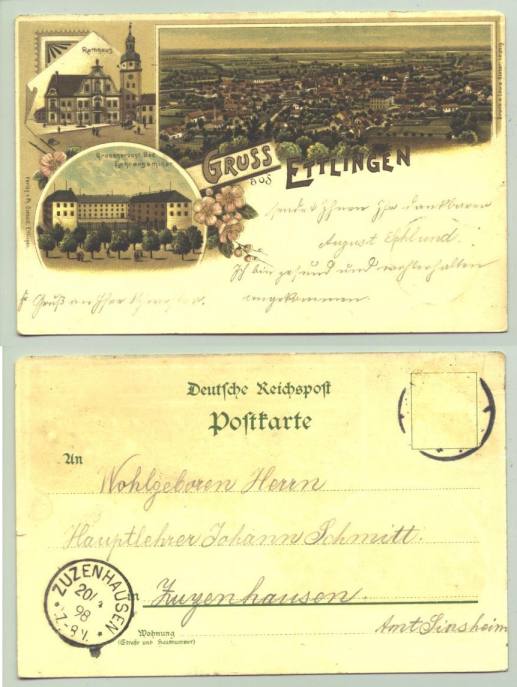 Rathhaus
GRUSS
aus
ETTLINGEN
Grossherzogl. Bad.
Lehrerseminar
sendet Ihnen Ihr dankbarer
August
Ich bin gesund und wohlerhalten
angekommen.
Gruß an
Deutsche Reichspost
Postkarte
An
Wohlgeboren Herrn
Hauptlehrer Johann Schmitt.
in Zuzenhausen.
Amt Sinsheim
Wohnung
(Straße und Hausnummer)
ZUZENHAUSEN
20/
98
7-8V.